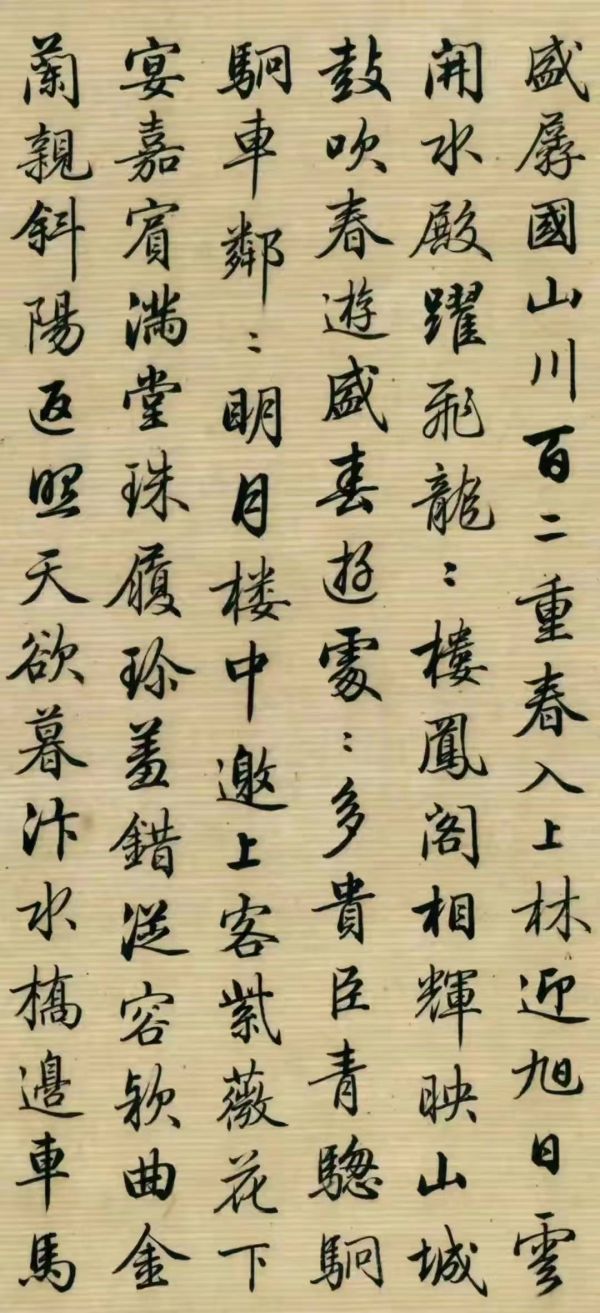 盛孱國山川百二重春入上林迎旭日雲
開水殿躍飛龍：樓鳳閣相輝映山城
鼓吹春遊盛春遊處：多貴臣青驄駉
駉車鄰：明月楼中邀上客紫薇花下
宴嘉賓滿堂珠履珍羞錯從容歌曲金
蘭親斜陽返照天欲暮汴水橋邊車馬